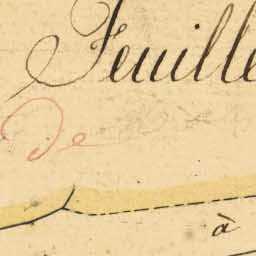 Feuille
de
à